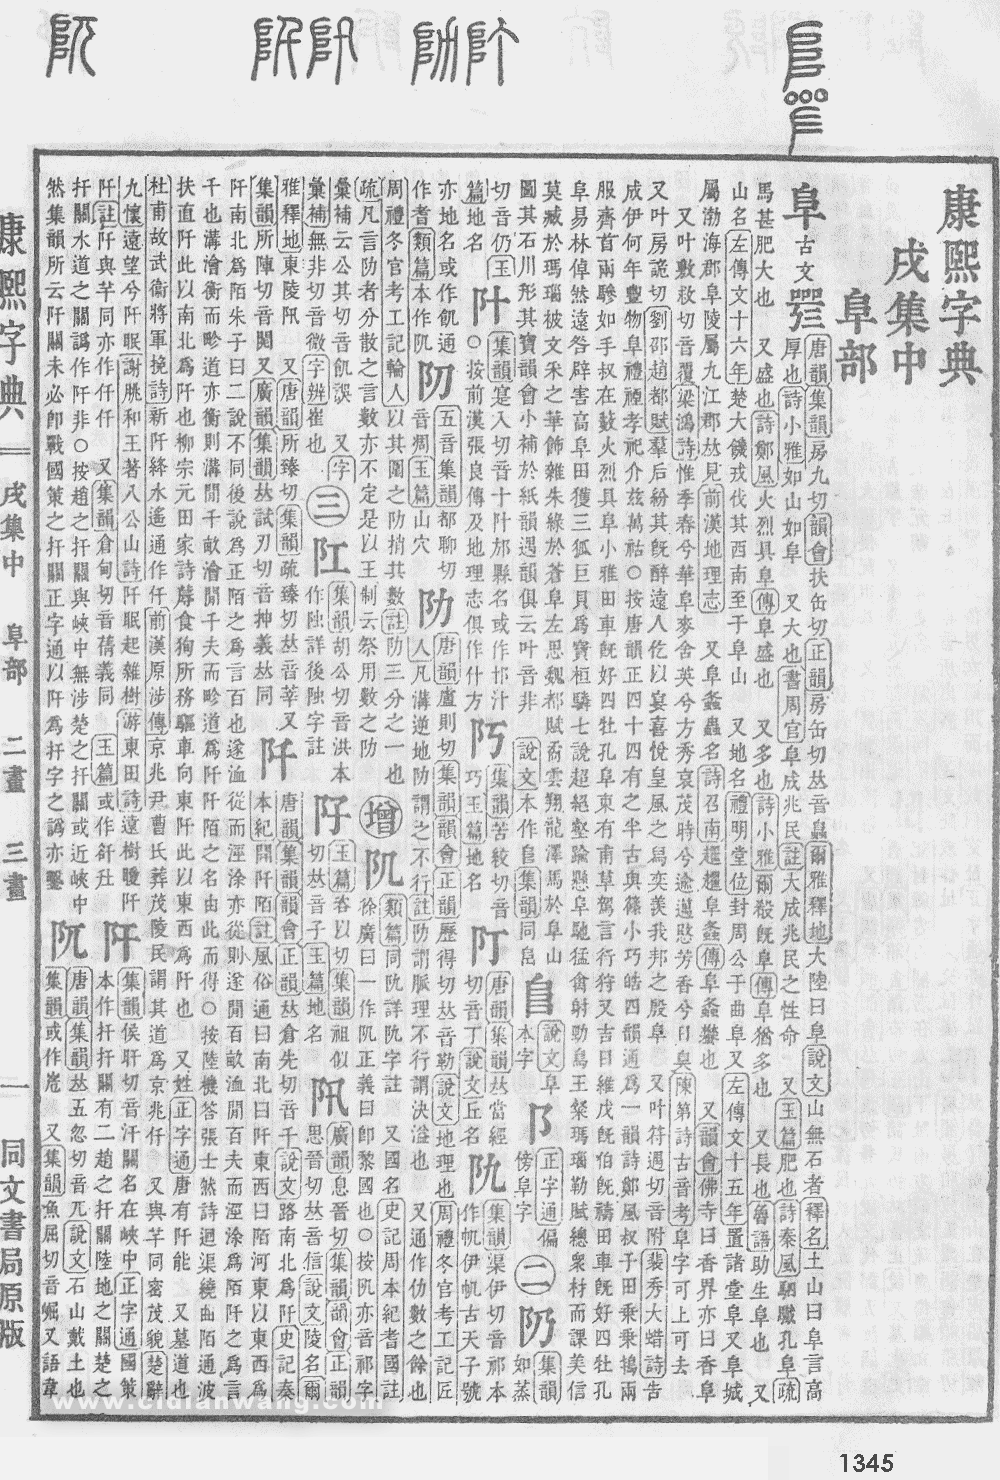 康熙字典
戌集中
阜部
阜古文
唐韻集韻房九切韻會扶缶切正韻房缶切𠀤音𧌓爾雅釋地大陸曰阜說文山無石者釋名土山曰阜言高
厚也詩小雅如山如阜 又大也書周官阜成兆民註大成兆民之性命 又玉篇肥也詩秦風駟驖孔阜疏
馬甚肥大也 又盛也詩鄭風火烈具阜傳阜盛也 又多也詩小雅爾殺旣阜傳阜猶多也 又長也魯語助生阜也 又
山名左傳文十六年楚大饑戎伐其西南至于阜山 又地名禮明堂位封周公于曲阜又左傳文十五年置諸堂阜又阜城
屬渤海郡阜陵屬九江郡𠀤見前漢地理志 又阜螽蟲名詩召南趯趯阜螽傳阜螽蠜也 又韻會佛寺曰香界亦曰香阜
又叶敷救切音覆梁鴻詩惟季春兮華阜麥含英兮方秀哀茂時兮逾邁愍芳香兮日臭陳第詩古音考阜字可上可去
又叶房詭切劉邵趙都賦羣后紛其旣醉遠人仡以宴喜悅皇風之舄奕羨我邦之殷阜 又叶符遇切音附裴秀大蜡詩告
成伊何年豐物阜禮禋孝祀介兹萬祜○按唐韻正四十四有之半古與篠小巧皓四韻通爲一韻詩鄭風叔于田乘乗鴇兩
服齊首兩驂如手叔在藪火烈具阜小雅田車旣好四牡孔阜東有甫草駕言行狩又吉日維戊旣伯旣禱田車旣好四牡孔
阜易林倬然遠咎辟害高阜田獲三狐巨貝爲寶桓驎七說超絕壑踰懸阜馳猛禽射勁鳥王粲瑪瑙勒賦總衆材而課美信
莫臧於瑪瑙被文采之華飾雜朱綠於蒼阜左思魏都賦矞雲翔龍澤馬於阜山
圖其石川形其寶韻會小補於紙韻遇韻俱云叶音非
說文本作𨸏集韻同𨸏
𨸏
說文阜
本字
阝
正字通偏
傍阜字
二
阞
集韻
如蒸
切音仍玉
篇地名
阩
集韻寔入切音十阩邡縣名或作邟汁
○按前漢張良傳及地理志俱作什方
阠
集韻苦絞切音
巧玉篇地名
阢
唐韻集韻𠀤當經
切音丁說文丘名
集韻渠伊切音祁本
作帆伊帆古天子號
亦地名或作飢通
作耆類篇本作阢
五音集韻都聊切
音凋玉篇山穴
阞
唐韻盧則切集韻韻會正韻歷得切𠀤音勒說文地理也周禮冬官考工記匠
人凡溝逆地阞謂之不行註阞謂脈理不行謂決溢也 又通作仂數之餘也
周禮冬官考工記輪人以其圍之阞捎其數註阞三分之一也
疏凡言阞者分散之言數亦不定是以王制云祭用數之仂
增
阢
類篇同阢詳阢字註 又國名史記周本紀耆國註
徐廣曰一作阢正義曰卽黎國也○按阢亦音祁字
彙補云公其切音飢誤 又字
彙補無非切音微字辨崔也
三
𨸝
集韻胡公切音洪本
作陊詳後字註
玉篇咨以切集韻祖似
切𠀤音子玉篇地名
阠
廣韻息晉切集韻韻會正韻
思晉切𠀤音信說文陵名爾
雅釋地東陵阠 又唐韻所臻切集韻疏臻切𠀤音莘又
集韻所陣切音閺又廣韻集韻𠀤試刃切音抻義𠀤同
阡
唐韻集韻韻會正韻𠀤倉先切音千說文路南北爲阡史記秦
本紀開阡陌註風俗通曰南北曰阡東西曰陌河東以東西爲
阡南北爲陌朱子曰二說不同後說爲正陌之爲言百也遂洫從而涇涂亦從則遂閒百畝洫閒百夫而涇涂爲陌阡之爲言
千也溝澮衡而畛道亦衡則溝閒千畝澮閒千夫而畛道爲阡阡陌之名由此而得○按陸機答張士然詩迴渠繞曲陌通波
扶直阡此以南北爲阡也柳宗元田家詩蓐食狥所務驅車向東阡此以東西爲阡也 又姓正字通唐有阡能 又墓道也
杜甫故武衞將軍挽詩新阡絳水遙通作仟前漢原涉傳京兆尹曹氏葬茂陵民謂其道爲京兆仟 又與芊同密茂貌楚辭
九懷遠望兮阡眠謝朓和王著八公山詩阡眠起雜樹游東田詩遠樹曖阡
阡註阡與芊同亦作仟仟 又集韻倉甸切音蒨義同
玉篇或作釬
阱
集韻侯肝切音汗關名在峽中正字通國策
本作扞扞關有二趙之扞關陸地之關楚之
扞關水道之關譌作阡非○按趙之扞關與峽中無涉楚之扞關或近峽中
然集韻所云阡關未必卽戰國策之扞關正字通以阡爲扞字之譌亦鑿
阢
唐韻集韻𠀤五忽切音兀說文石山戴土也
集韻或作峗 又集韻魚屈切音崛又語韋
康熙字典
戌集中
阜部
二畫
三畫
一
同文書局原版
www.cidianwang.com
1345